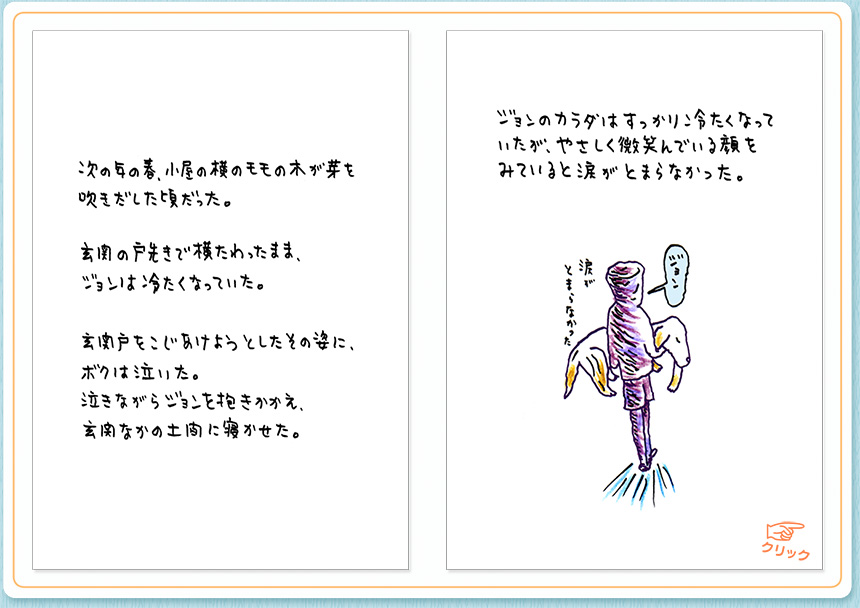 次の年の春、小屋の横のモモの木が芽を
吹きだした頃だった。
玄関の戸先きで横たわったまま、
ジョンは冷たくなっていた。
玄関戸をこじあけようとしたその姿に、
ボクは泣いた。
泣きながらジョンを抱きかかえ、
玄関なかの土間に寝かせた。
ジョンのカラダはすっかり冷たくなって
いたが、やさしく微笑んでいる顔を
みていると涙がとまらなかった。
ジョン
涙が
とまらなかった
クリック